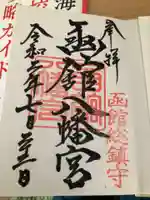 奉拝
函館総鎮守
函館八幡宮
令和二年七月二十三日
海
略ガイド